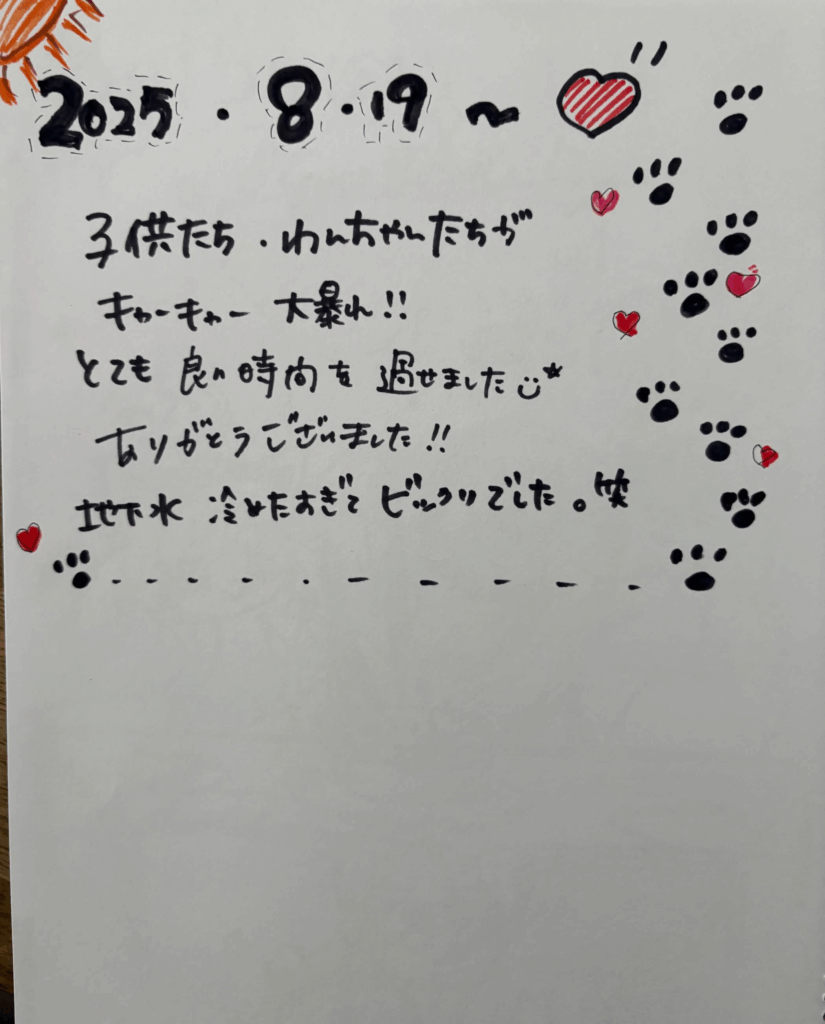 2025・8・19〜
子供たち・わんちゃんたちが
キャーキャー 大暴れ!!
とても 良い時間を 過せました
ありがとうございました!!
地下水 冷めたすぎて ビックリでした。笑